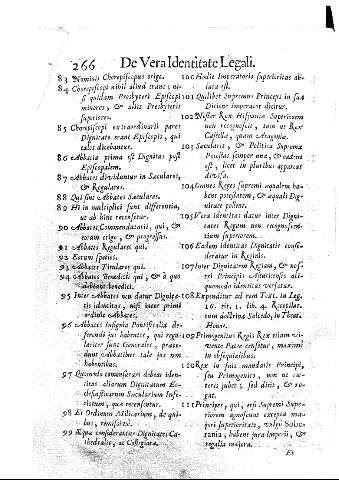 266 De Vera Identitate Legali.
83 Nominis Chorepiscopus origo.
84 Chorepiscopi nihil aliud erant; ni-
si quidam Presbyteri Episcopi
minores, & aliis Presbyteris
superiores.
85 Chorepiscopi extraordinarii pares
Dignitate erant Episcopis, qui
tales dicebantur.
86 Abbatia prima est Dignitas post
Episcopalem.
87 Abbates dividuntur in Sæcularis,
& Regulares.
88 Qui sint Abbates Sæculares.
89 Hi in multiplici sunt differentia,
ut ab hinc recensetur.
90 Abbates Commendatarii, qui, &
eorum origo, & progressus.
91 Abbates Regulares qui.
92 Eorum species.
93 Abbates Titulares qui.
94 Abbates Benedicti qui, & à quo
debeant benedici.
95 Inter Abbates non datur Dignita-
tis identitas, nisi inter primi
ordinis Abbates.
96 Abbates Insignia Pontificalia de-
ferendi jus habentes, qui regu-
lariter sunt Generales, præce-
dunt Abbatibus tale jus non
habentibus.
97 Quomodo considerari debeat iden-
titas aliarum Dignitatum Ec-
clesiasticarum Sæcularium Infe-
riorum, quæ recensentur.
98 Et Ordinum Militarium, de qui-
bus, remissivè.
99 Æquæ considerantur Dignitates Ca-
thedralis, ac Collegiatæ.
100 Hodie Imperatoris superioritas ab-
lata est.
101 Quilibet Supremus Princeps in sua
Ditione Imperator dicitur.
102 Noster Rex Hispaniæ Superiorem
non recognoscit, tam ut Rex
Castellæ, quam Aragoniæ.
103 Sæcularis, & Politica Suprema
Potestas semper una, & eadem
est, licet in pluribus apparens
divisa.
104 Omnes Reges supremi æqualem ha-
bent potestatem, & æquali Dig-
nitate pollent.
105 Vera identitas datur inter Digni-
tates Regum non recognoscen-
tium superiorem.
106 Eadem identitas Dignitatis consi-
deratur in Reginis.
107 Inter Dignitatem Regiam, & nos-
tri Principis Asturicensis ali-
quomodo identitas versatur.
108 Expenditur ad rem Text. in Leg.
16. tit. 1. lib. 4. Recopilat.
cum doctrina Salcedo, in Theat.
Honor.
109 Primogenitus Regis Rex etiam vi-
vente Patre censetur, maximè
in obsequialibus.
110 Rex in suis mandatis Principi,
seu Primogenito, non ut cæ-
teris jubet; sed dicit, & ro-
gat.
111 Principes, qui, etsi Supremi Supe-
riorem agnoscunt excepta ma-
jori superioritate, vulgò Sobe-
rania, habent jura Imperii, &
regalia majora.
Et